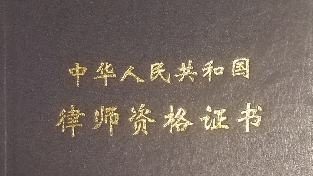 中华人民共和国
律师资格证书